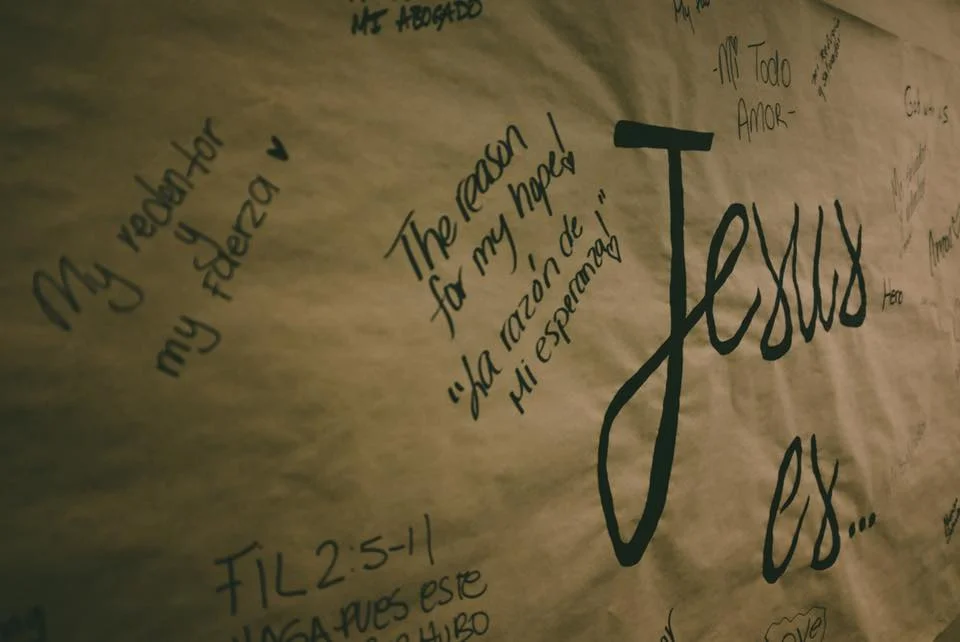 MI ABOGADO
My
-Mi Todo
AMOR-
My redentor
y
my fuerza
The reason
for my hope!
"La razón de
Mi esperanza!"
Jesus
es...
Hero
FIL 2:5-11
HAGA PUES ESTE
HUBO
Love